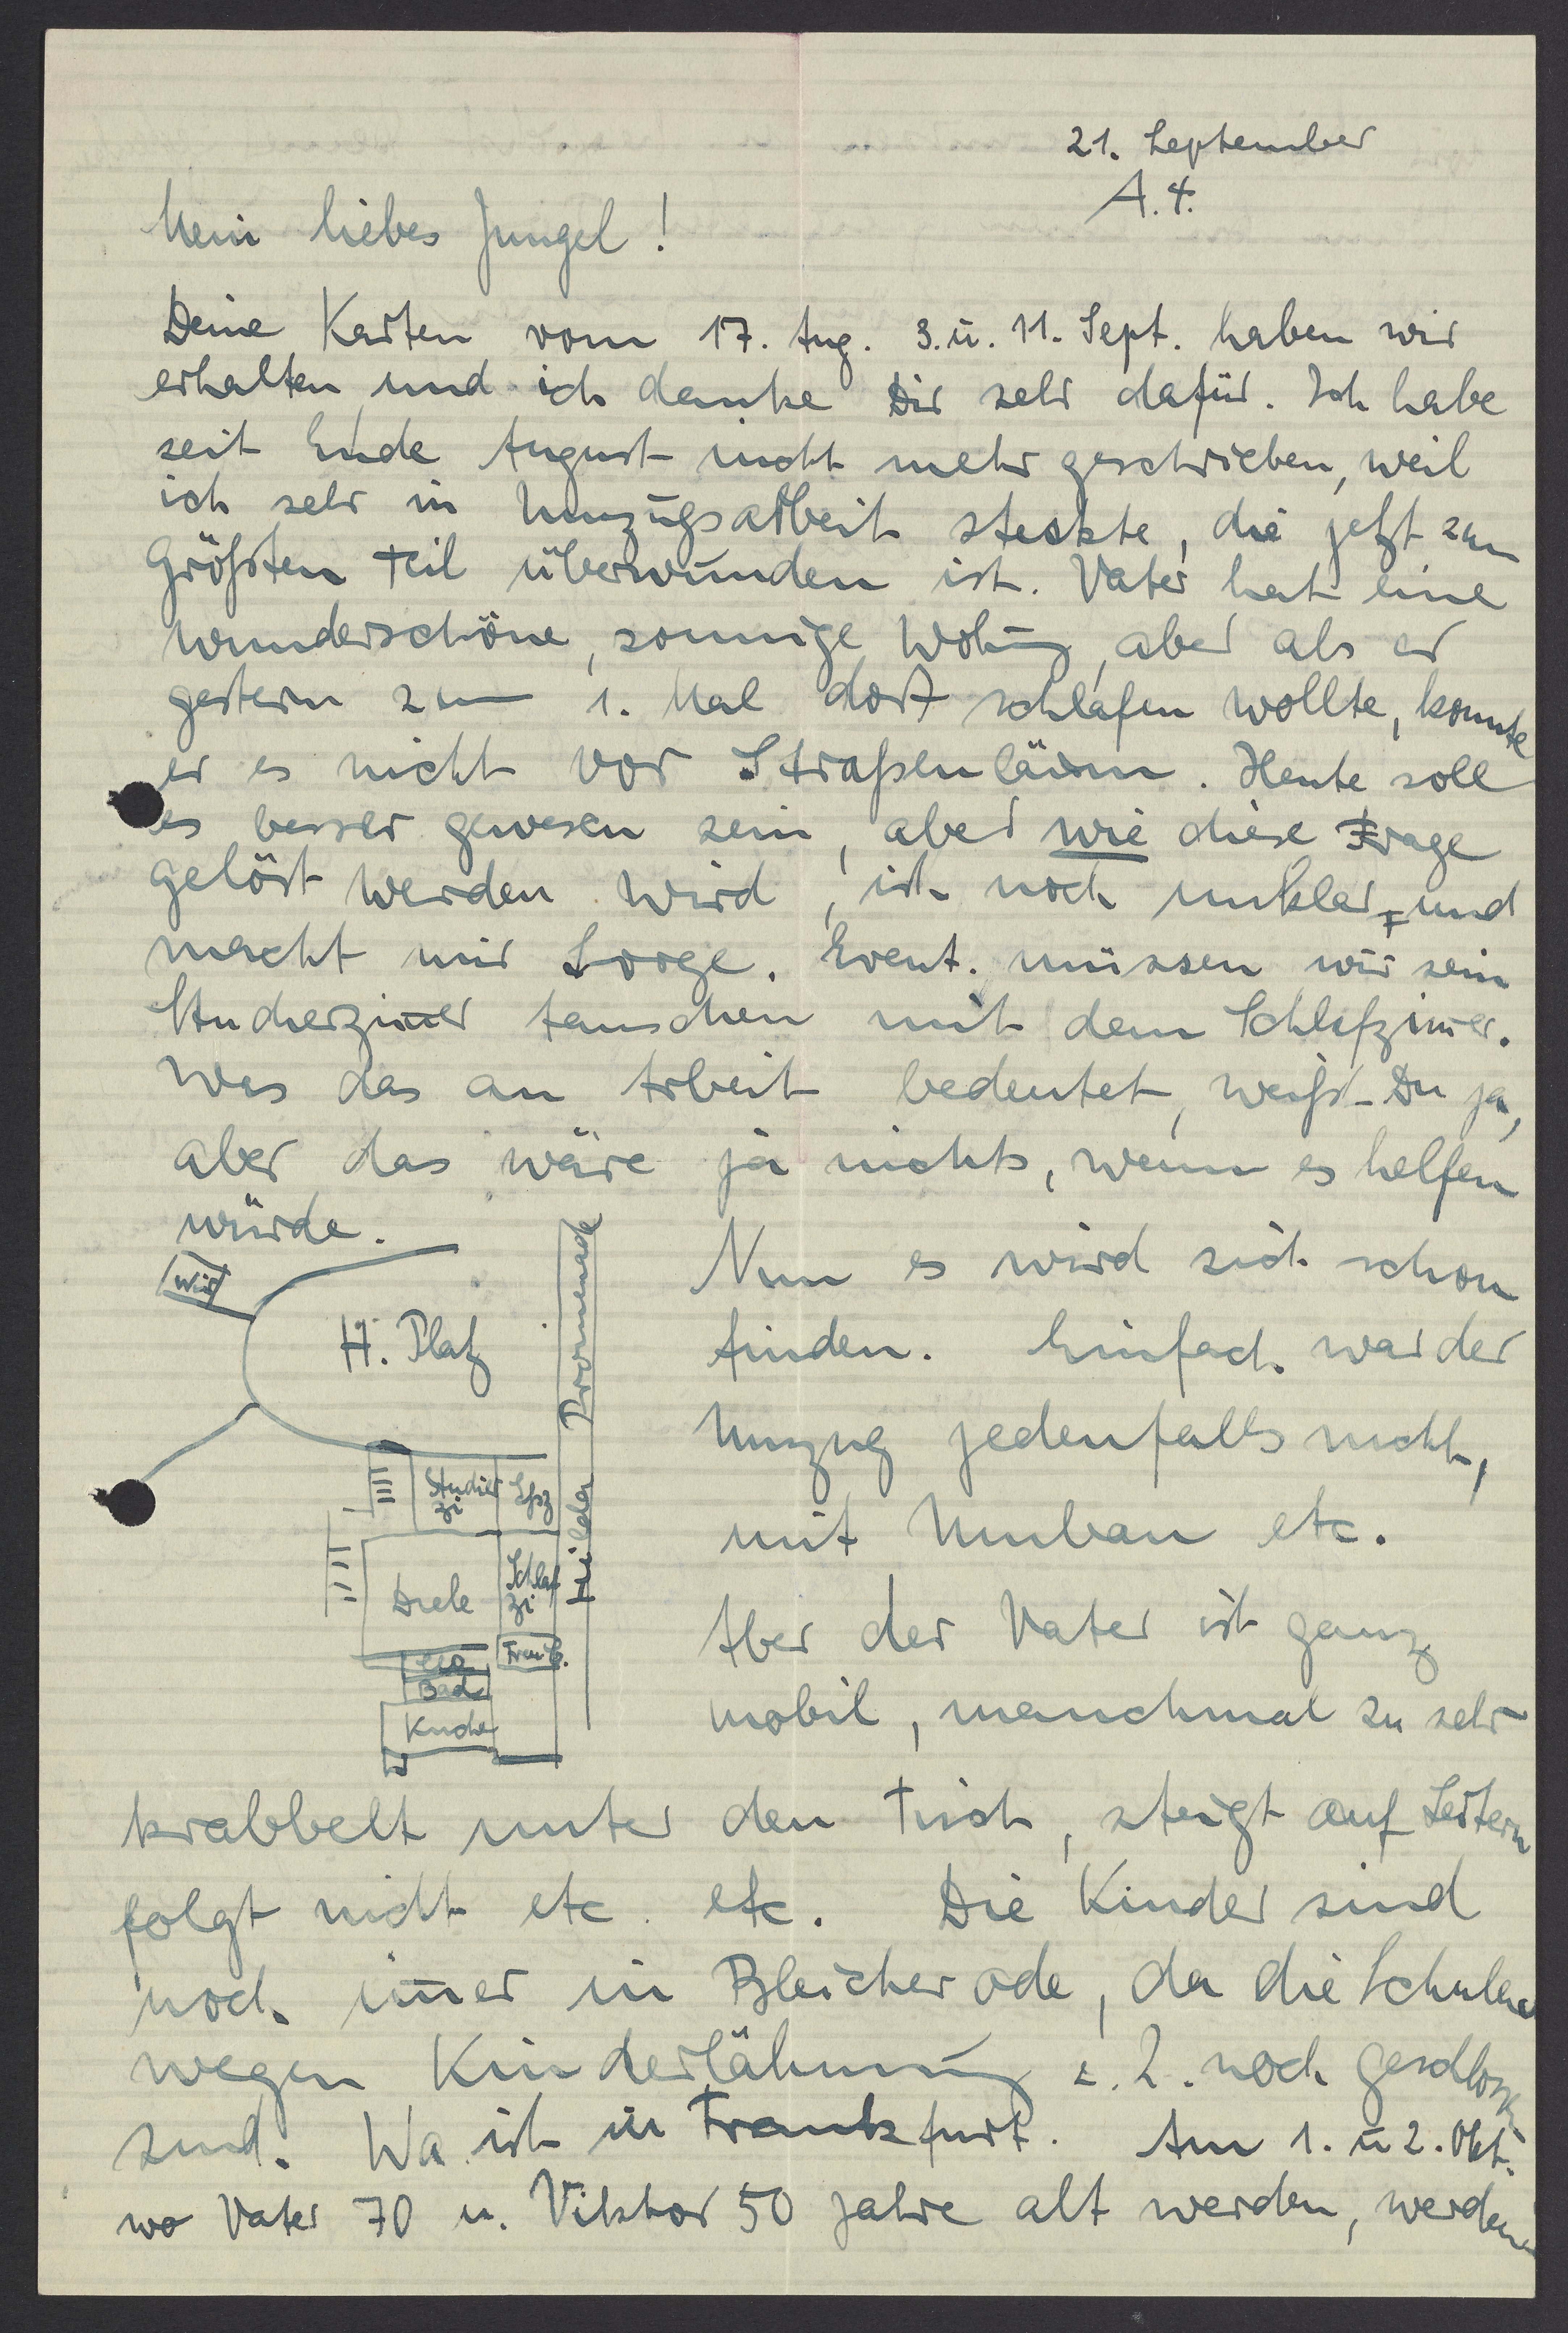 21. September
A. 4.
Mein liebes Jungel!
Deine Karten vom 17. Aug. 3. u. 11. Sept. haben wir
erhalten und ich danke Dir sehr dafür. Ich habe
seit Ende August nicht mehr geschrieben, weil
ich sehr in Umzugsarbeit steckte, die jetzt zum
größten Teil überwunden ist. Vater hat eine
wunderschöne, sonnige Wohng, aber als er
gestern zum 1. Mal dort schlafen wollte, konnte
er es nicht vor Straßenlärm. Heute soll
es besser gewesen sein, aber wie diese Frage
gelöst werden wird, ist noch unklar und
macht mir Sorge. Event. müssen wir sein
Studierzimer tauschen mit dem Schlafzimer.
Was das an Arbeit bedeutet, weißt Du ja,
aber das wäre ja nichts, wenn es helfen
würde.
Nun es wird sich schon
finden. Einfach war der
Umzug jedenfalls nicht,
mit Umbau etc.
Aber der Vater ist ganz
mobil, manchmal zu sehr
Wir
H. Platz
Hilda Promenade
Studier
zi
Essz
Diele
Schlaf
zi
Frau C.
Bad
Küche
krabbelt unter den Tisch, steigt auf Leitern
folgt nicht etc. etc. Die Kinder sind
noch imer in Bleicherode, da die Schulen
wegen Kinderlähmung z. Z. noch geschloss
sind. Wa ist in Frankfurt. Am 1. u 2. Okt.
wo Vater 70 u. Viktor 50 Jahre alt werden, werden